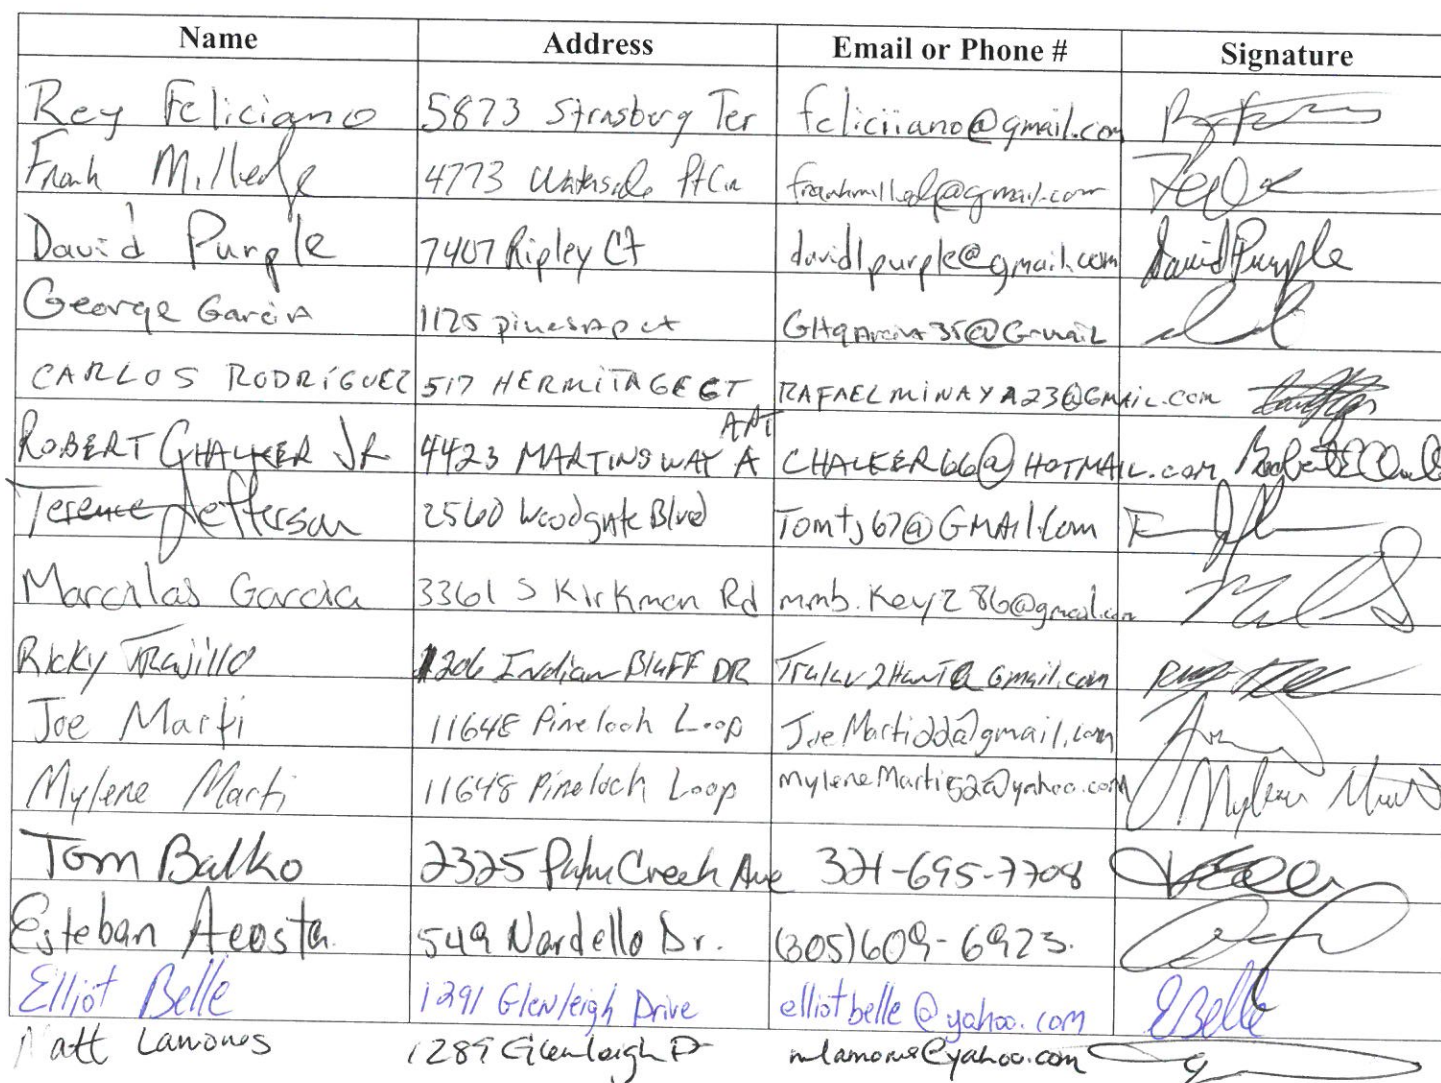 Name Address Email or Phone # Signature
Rey Feliciano 5873 Strasburg Ter feliciiano@gmail.com
Frank Milledge 4773
David Purple 7407 Ripley Ct davidlpurple@gmail.com David Purple
George Garcia 1125
CARLOS RODRÍGUEZ 517 HERMITAGE CT RAFAELMINAYA23@GMAIL.com
ROBERT CHALKER JR 4423 MARTINS WAY APT A CHALKER66@HOTMAIL.com
Terence Jefferson 2560 Woodgate Blvd Tomtj67@GMAIL.Com
Garcia 3361 S Kirkman Rd mmb.Key286@gmail.com
Ricky Trujillo 1206 Indian Bluff DR
Joe Marti 11648 Pineloch Loop JoeMarti22@gmail.com
Mylene Marti 11648 Pineloch Loop myleneMarti52@yahoo.com Mylene Marti
Tom Balko 2325 Palm Creek Ave 321-695-7708
Esteban Acosta. 549 Nardello Dr. (305)609-6923.
Elliot Belle 1291 Glenleigh Drive elliotbelle@yahoo.com EBelle
Matt Lamones 1289 Glenleigh Dr